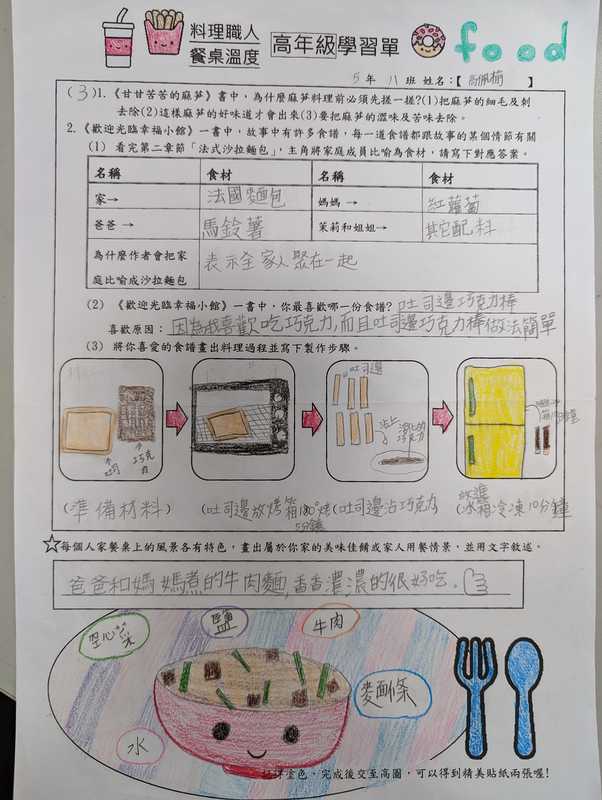 料理職人
餐桌溫度
高年級學習單
food
5年 八班 姓名：【 】
(3)1.《甘甘苦苦的麻笋》書中，為什麼麻笋料理前必須先搓一搓?(1)把麻笋的細毛及刺
去除(2)這樣麻笋的好味道才會出來(3)要把麻笋的澀味及苦味去除。
2.《歡迎光臨幸福小館》一書中，故事中有許多食譜，每一道食譜都跟故事的某個情節有關
(1) 看完第二章節「法式沙拉麵包」，主角將家庭成員比喻為食材，請寫下對應答案。
名稱 食材 名稱 食材
家→ 法國麵包 媽媽 → 紅蘿蔔
爸爸 → 馬鈴薯 茉莉和姐姐→ 其它配料
為什麼作者會把家
庭比喻成沙拉麵包 表示全家人聚在一起
(2) 《歡迎光臨幸福小館》一書中，你最喜歡哪一份食譜? 吐司邊巧克力棒
喜歡原因： 因為我喜歡吃巧克力,而且吐司邊巧克力棒做法簡單
(3) 將你喜愛的食譜畫出料理過程並寫下製作步驟。
吐司
巧克力
吐司邊
沾上
巧克力
(準備材料)
(吐司邊放烤箱180°烤5分鐘
(吐司邊沾巧克力
(放進冰箱冷凍10分鐘)
☆每個人家餐桌上的風景各有特色，畫出屬於你家的美味佳餚或家人用餐情景，並用文字敘述。
爸爸和媽媽煮的牛肉麵,香香濃濃的很好吃。
空心菜
鹽
牛肉
麵條
水
塗色，完成後交至高圖，可以得到精美貼紙兩張喔!